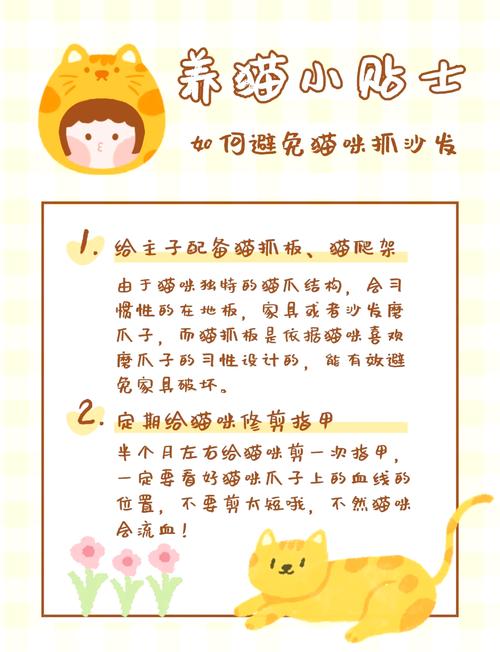 养猫小贴士
如何避免猫咪抓沙发
1. 给主子配备猫抓板、猫爬架
由于猫咪独特的猫爪结构，会习
惯性的在地板，家具或者沙发磨
爪子，而猫抓板是依据猫咪喜欢
磨爪子的习性设计的，能有效避
免家具破坏。
2. 定期给猫咪修剪指甲
半个月左右给猫咪剪一次指甲，
一定要看好猫咪爪子上的血线的
位置，不要剪太短哦，不然猫咪
会流血！